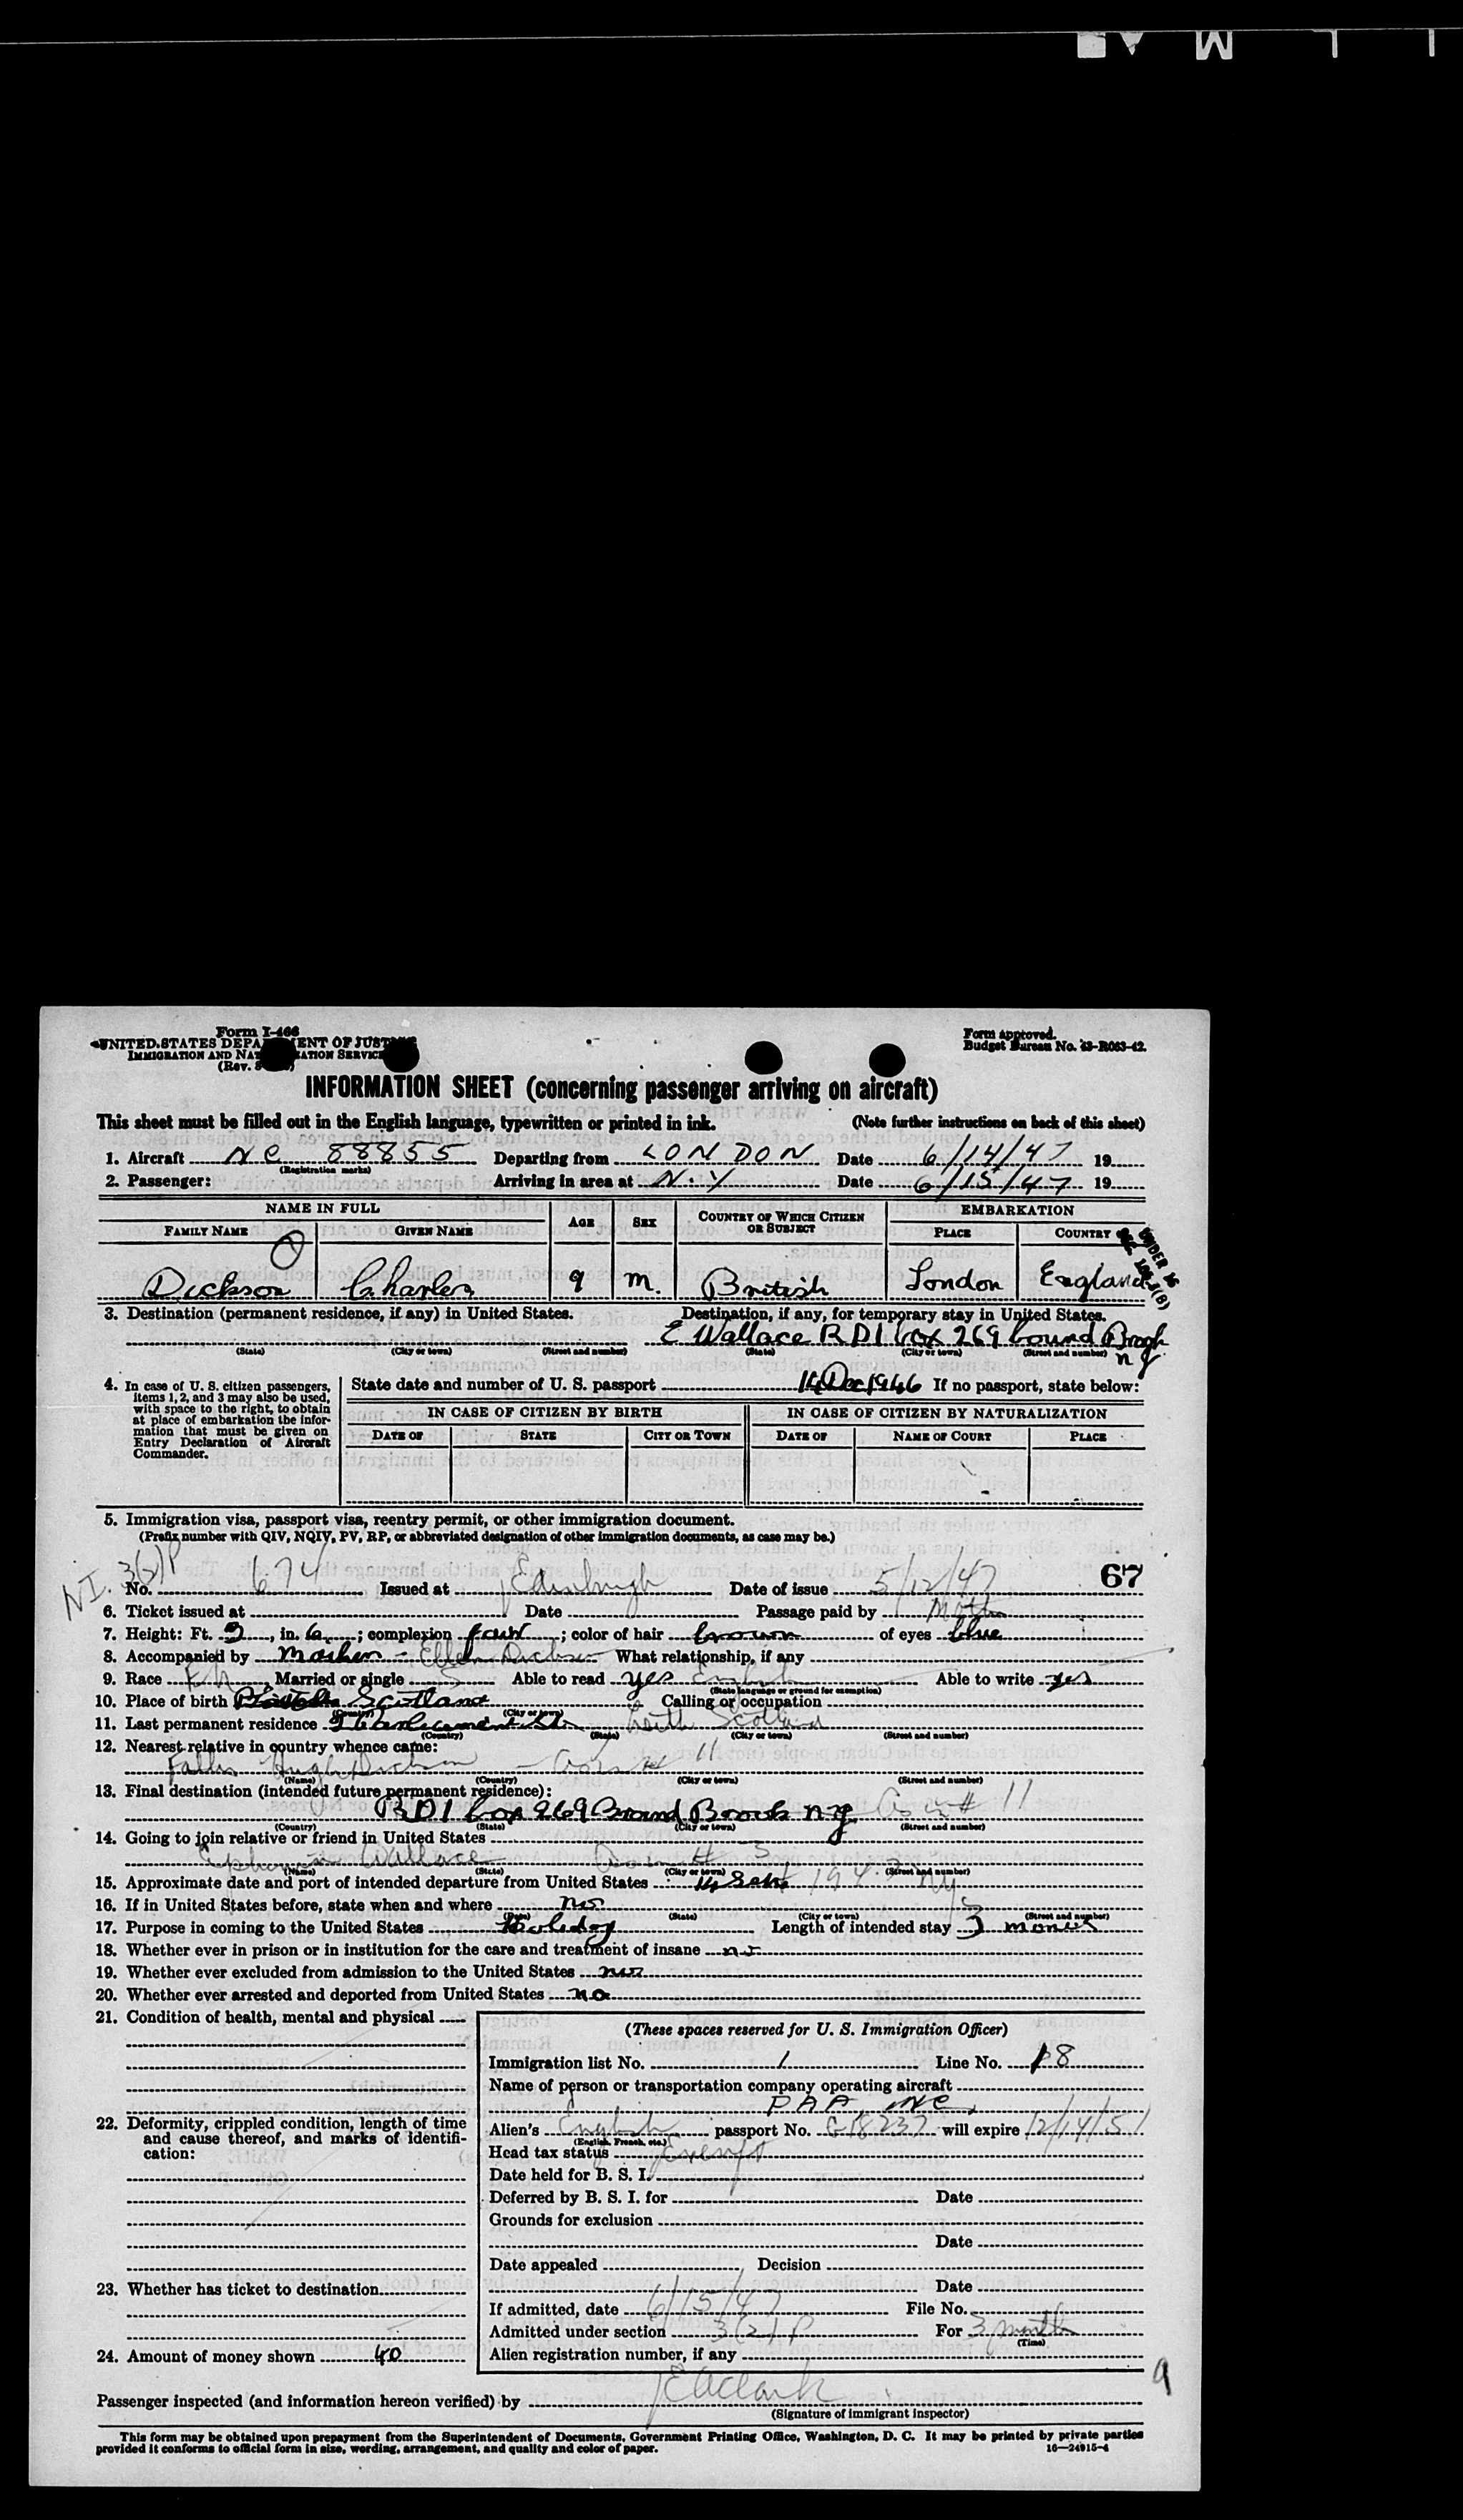 Form I-466
UNITED STATES DEPARTMENT OF JUSTICE
IMMIGRATION AND NATURALIZATION SERVICE
(Rev.
Form approved.
Budget Bureau No. 43-R063-42.
INFORMATION SHEET (concerning passenger arriving on aircraft)
This sheet must be filled out in the English language, typewritten or printed in ink. (Note further instructions on back of this sheet)
1. Aircraft NC 88855 Departing from LONDON Date 6/14/47 19
(Registration marks)
2. Passenger: Arriving in area at N.Y Date 6/15/47 19
NAME IN FULL AGE SEX COUNTRY OF WHICH CITIZEN OR SUBJECT EMBARKATION
FAMILY NAME GIVEN NAME PLACE COUNTRY
UNDER 16
Dickson Charles 9 M. British London England
3. Destination (permanent residence, if any) in United States. Destination, if any, for temporary stay in United States.
E Wallace RD1 box 269 bound Brook
(State) (City or town) (Street and number) (State) (City or town) (Street and number)
NJ
4. In case of U. S. citizen passengers, items 1, 2, and 3 may also be used, with space to the right, to obtain at place of embarkation the information that must be given on Entry Declaration of Aircraft Commander.
State date and number of U. S. passport 14 Dec 1946 If no passport, state below:
IN CASE OF CITIZEN BY BIRTH IN CASE OF CITIZEN BY NATURALIZATION
DATE OF STATE CITY OR TOWN DATE OF NAME OF COURT PLACE
5. Immigration visa, passport visa, reentry permit, or other immigration document.
(Prefix number with QIV, NQIV, PV, RP, or abbreviated designation of other immigration documents, as case may be.)
NI. 3(2)P
67
No. 674 Issued at Edinburgh Date of issue 5/12/47
6. Ticket issued at Date Passage paid by Mother
7. Height: Ft. in. 6 ; complexion fair ; color of hair brown of eyes blue
8. Accompanied by Mother - Ellen Dickson What relationship, if any
9. Race Married or single S Able to read yes English Able to write yes
(State language or ground for exemption)
10. Place of birth Scotland Calling or occupation
(Country) (City or town)
11. Last permanent residence St. Leith Scotland
(Country) (State) (City or town) (Street and number)
12. Nearest relative in country whence came:
Father Hugh Dickson - as in # 11
(Name) (Country) (City or town) (Street and number)
13. Final destination (intended future permanent residence):
RD1 box 269 Bound Brook NJ as in # 11
(Country) (State) (City or town) (Street and number)
14. Going to join relative or friend in United States
Wallace as in # 3
(Name) (State) (City or town) (Street and number)
15. Approximate date and port of intended departure from United States 14 Sept 1947 NY
16. If in United States before, state when and where no
(Date) (State) (City or town) (Street and number)
17. Purpose in coming to the United States Holiday Length of intended stay 3 months
18. Whether ever in prison or in institution for the care and treatment of insane no
19. Whether ever excluded from admission to the United States no
20. Whether ever arrested and deported from United States no
21. Condition of health, mental and physical
22. Deformity, crippled condition, length of time and cause thereof, and marks of identification:
23. Whether has ticket to destination
24. Amount of money shown 40
(These spaces reserved for U. S. Immigration Officer)
Immigration list No. 1 Line No. 18
Name of person or transportation company operating aircraft
PAA, INC.
Alien's English passport No. G18237 will expire 12/14/51
(English, French, etc.)
Head tax status Exempt
Date held for B. S. I.
Deferred by B. S. I. for Date
Grounds for exclusion
Date
Date appealed Decision
Date
If admitted, date 6/15/47 File No.
Admitted under section 3(2)P For 3 months
(Time)
Alien registration number, if any
9
Passenger inspected (and information hereon verified) by E A Clark
(Signature of immigrant inspector)
This form may be obtained upon prepayment from the Superintendent of Documents, Government Printing Office, Washington, D. C. It may be printed by private parties
provided it conforms to official form in size, wording, arrangement, and quality and color of paper. 16—24915-4